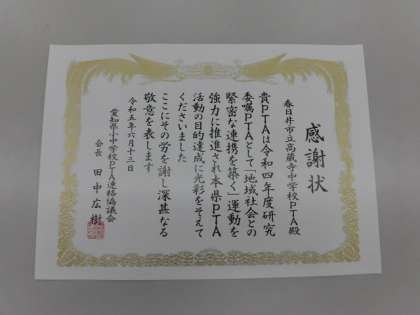 感謝状
春日井市立高蔵寺中学校PTA殿
貴PTAは令和四年度研究
委嘱PTAとして「地域社会との
緊密な連携を築く」運動を
強力に推進され本県PTA
活動の目的達成に光彩をそえて
くださいました
ここにその労を謝し深甚なる
敬意を表します
令和五年六月十三日
愛知県小中学校PTA連絡協議会
会長 田中広樹